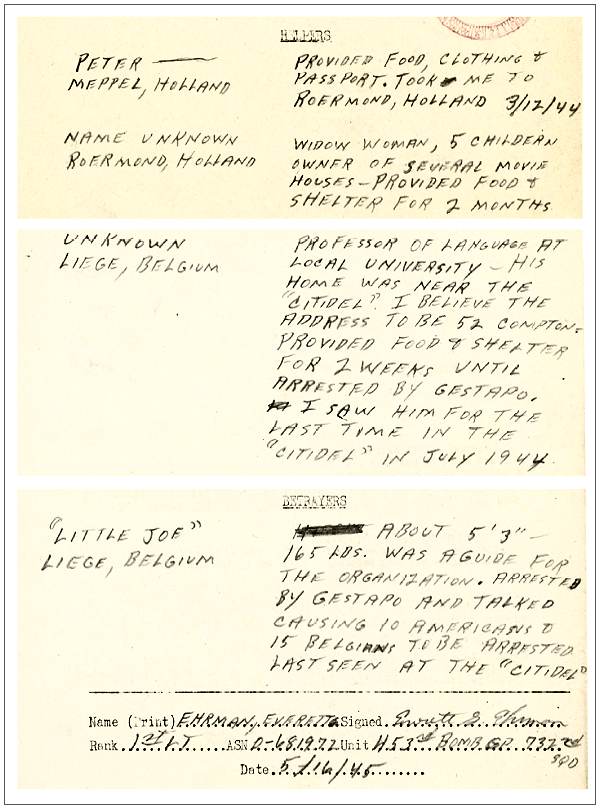 HELPERS
PETER —
MEPPEL, HOLLAND
PROVIDED FOOD, CLOTHING &
PASSPORT. TOOK ME TO
ROERMOND, HOLLAND 3/12/44
NAME UNKNOWN
ROERMOND, HOLLAND
WIDOW WOMAN, 5 CHILDERN
OWNER OF SEVERAL MOVIE
HOUSES – PROVIDED FOOD &
SHELTER FOR 2 MONTHS
UNKNOWN
LIEGE, BELGIUM
PROFESSOR OF LANGUAGE AT
LOCAL UNIVERSITY – HIS
HOME WAS NEAR THE
"CITIDEL". I BELIEVE THE
ADDRESS TO BE 52 COMPTON –
PROVIDED FOOD & SHELTER
FOR 2 WEEKS UNTIL
ARRESTED BY GESTAPO.
I SAW HIM FOR THE
LAST TIME IN THE
"CITIDEL" IN JULY 1944
BETRAYERS
"LITTLE JOE"
LIEGE, BELGIUM
ABOUT 5'3" –
165 LDS. WAS A GUIDE FOR
THE ORGANIZATION. ARRESTED
BY GESTAPO AND TALKED
CAUSING 10 AMERICANS &
15 BELGIANS TO BE ARRESTED
LAST SEEN AT THE "CITIDEL"
Name (Print) EHRMAN, EVERETT Signed Everett S Ehrman
Rank 1st LT ASN O-681972 Unit 453rd BOMB GP 732nd SQD
Date 5/16/45